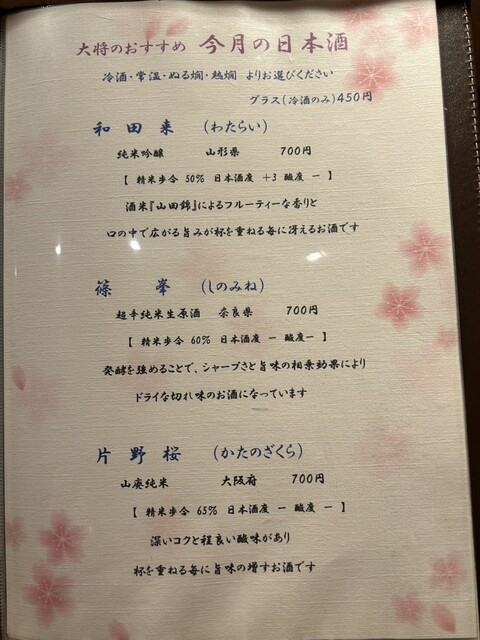 大将のおすすめ 今月の日本酒
冷酒・常温・ぬる燗・熱燗 よりお選びください
グラス(冷酒のみ)450円
和田来 (わたらい)
純米吟醸 山形県 700円
【 精米歩合 50% 日本酒度 +3 酸度 ー 】
酒米『山田錦』によるフルーティーな香りと
口の中で広がる旨みが杯を重ねる毎に冴えるお酒です
篠峯 (しのみね)
超辛純米生原酒 奈良県 700円
【 精米歩合 60% 日本酒度 ー 酸度ー 】
発酵を強めることで、シャープさと旨味の相乗効果により
ドライな切れ味のお酒になっています
片野桜 (かたのざくら)
山廃純米 大阪府 700円
【 精米歩合 65% 日本酒度 ー 酸度 ー 】
深いコクと程良い酸味があり
杯を重ねる毎に旨味の増すお酒です